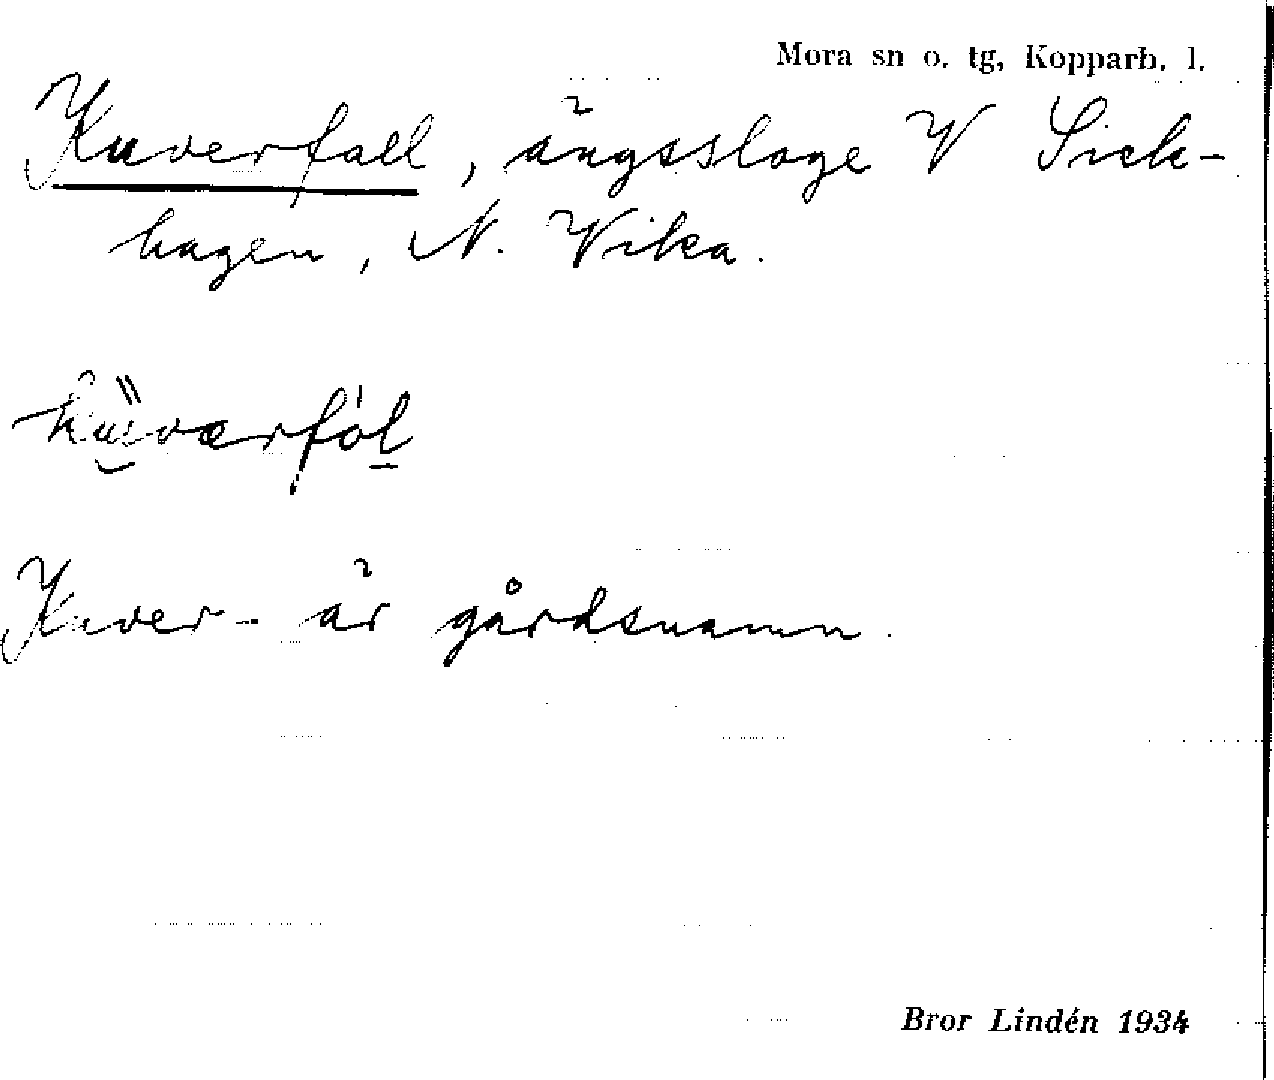 Mora sn o. tg, Kopparb. l.
Kuverfall, ängssloge V Sick-
hagen, N. Vika.
Kuver- är gårdsnamn.
Bror Lindén 1934